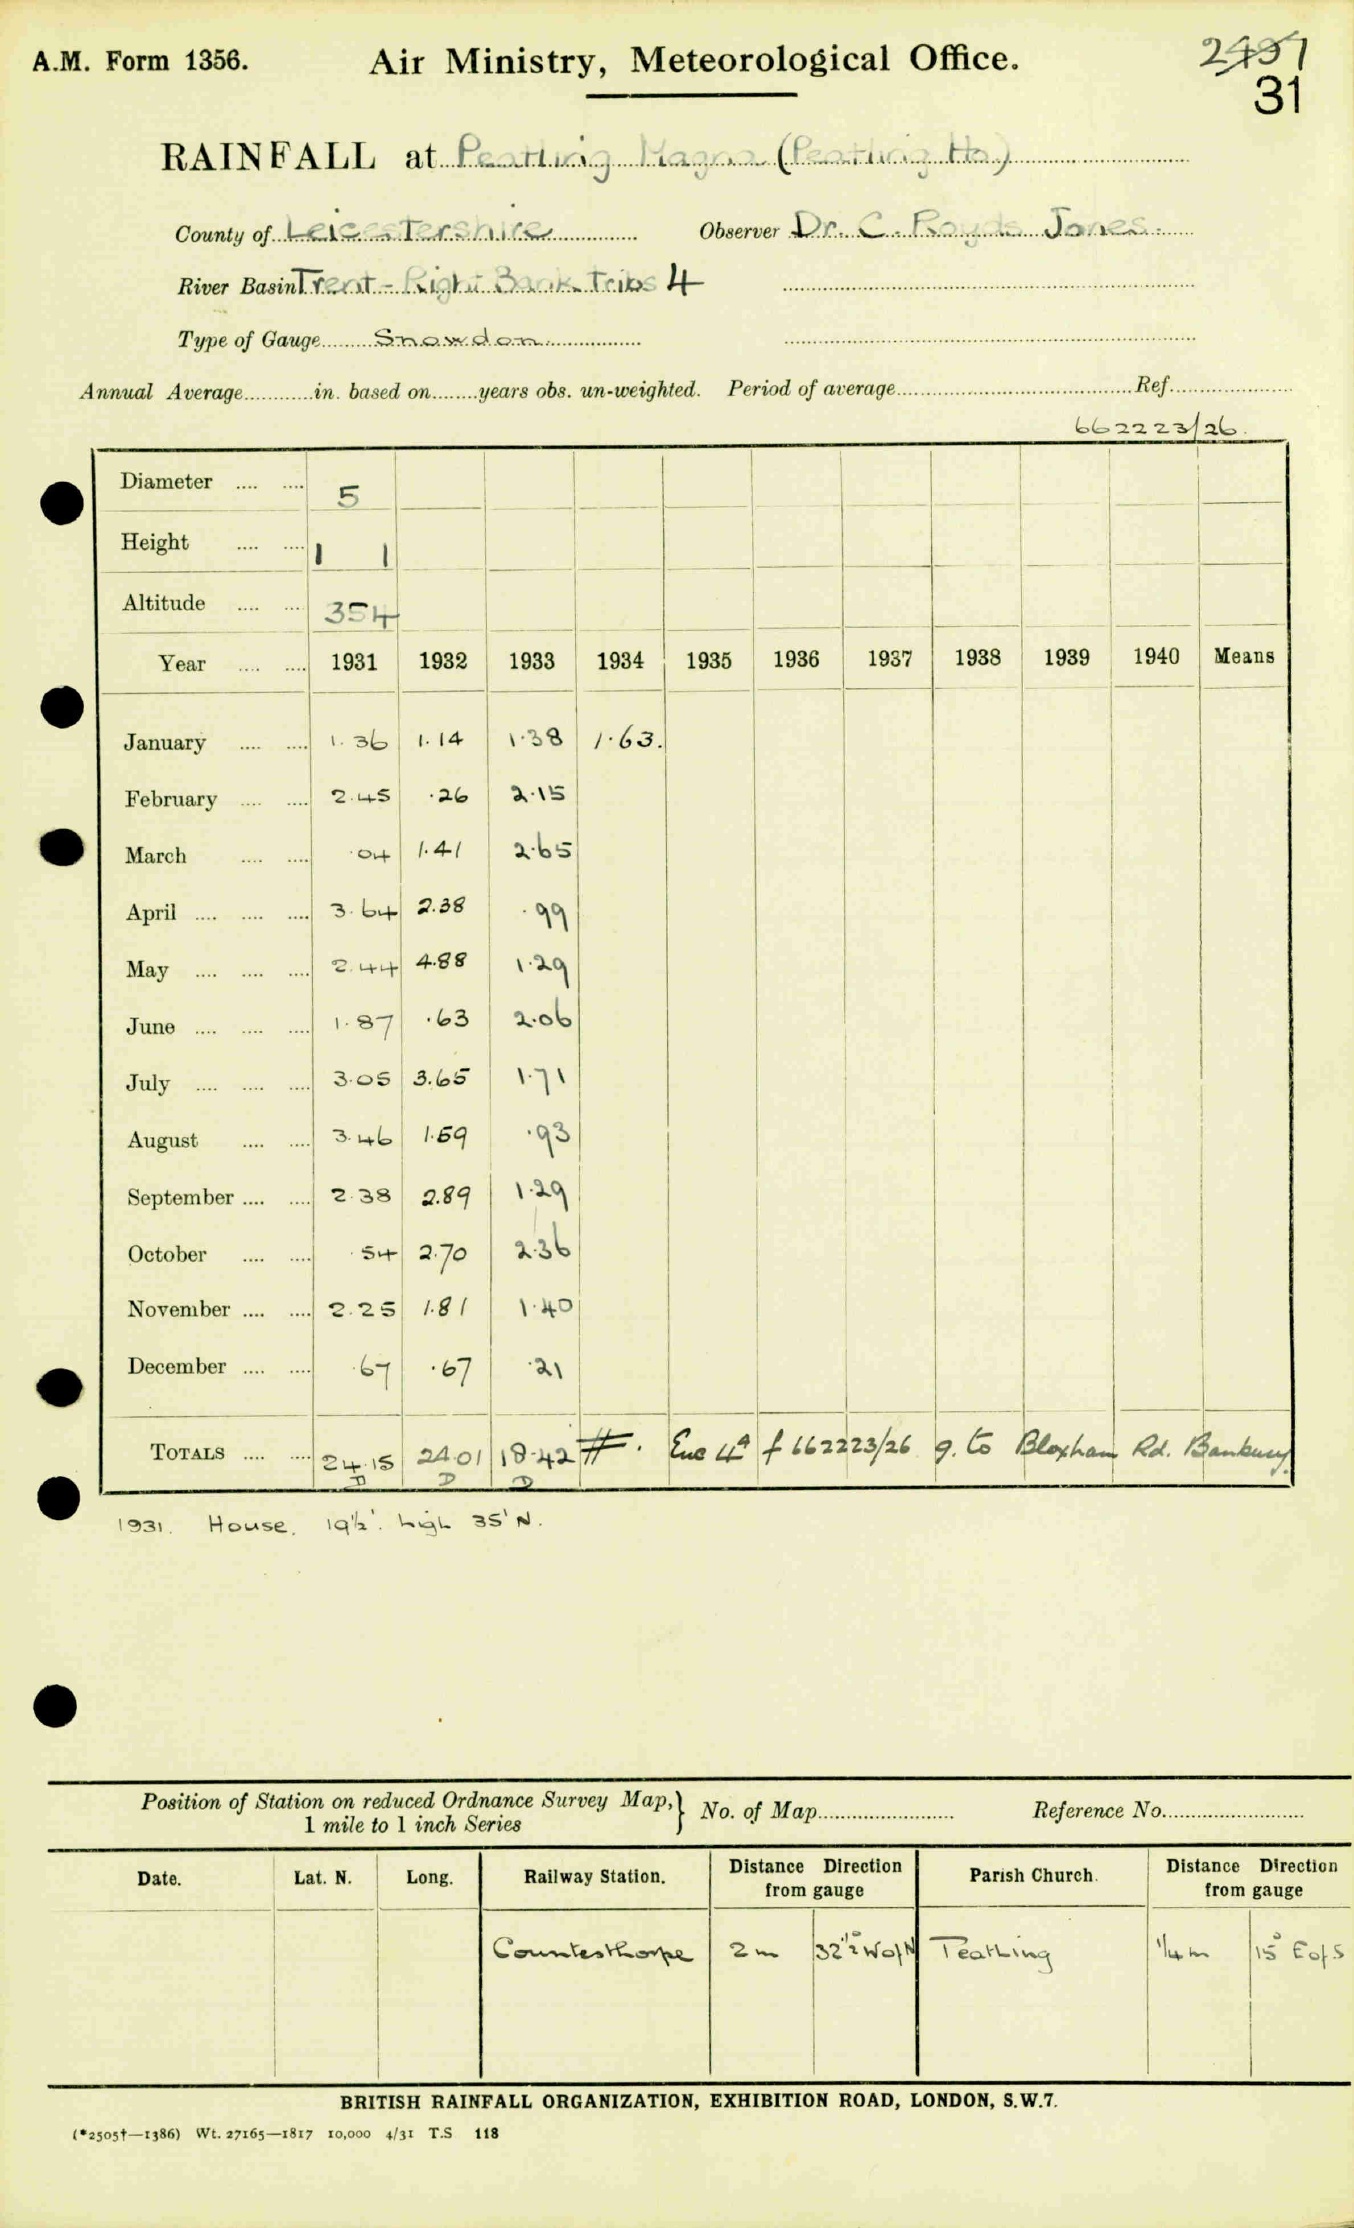 A.M. Form 1356. Air Ministry, Meteorological Office. 2497
31
RAINFALL at Peatling Magna (Peatling Ho)
County of Leicestershire Observer Dr. C. Royds Jones.
River Basin Trent - Right Bank Tribs 4
Type of Gauge Snowdon
Annual Average............in. based on........years obs. un-weighted. Period of average.............Ref.............
662223/26.
Diameter .... .... 5
Height .... .... 1 1
Altitude .... .... 354
Year .... .... 1931 1932 1933 1934 1935 1936 1937 1938 1939 1940 Means
January .... .... 1.36 1.14 1.38 1.63.
February .... .... 2.45 .26 2.15
March .... .... .04 1.41 2.65
April .... .... .... 3.64 2.38 .99
May .... .... .... 2.44 4.88 1.29
June .... .... .... 1.87 .63 2.06
July .... .... .... 3.05 3.65 1.71
August .... .... 3.46 1.59 .93
September .... .... 2.38 2.89 1.29
October .... .... .54 2.70 2.36
November .... .... 2.25 1.81 1.40
December .... .... .67 .67 .21
TOTALS .... .... 24.15 24.01 18.42 #. Enc 4A f 662223/26 g. to Bloxham Rd. Banbury.
D D D
1931. House. 19½'. high 35' N.
Position of Station on reduced Ordnance Survey Map,} No. of Map............ Reference No............
1 mile to 1 inch Series
Date. Lat. N. Long. Railway Station. Distance Direction from gauge Parish Church. Distance Direction from gauge
Countesthorpe 2 m 32½° W of N Peatling ¼ m 15° E of S
BRITISH RAINFALL ORGANIZATION, EXHIBITION ROAD, LONDON, S.W.7.
(*2505†—1386) Wt. 27165—1817 10,000 4/31 T.S 118